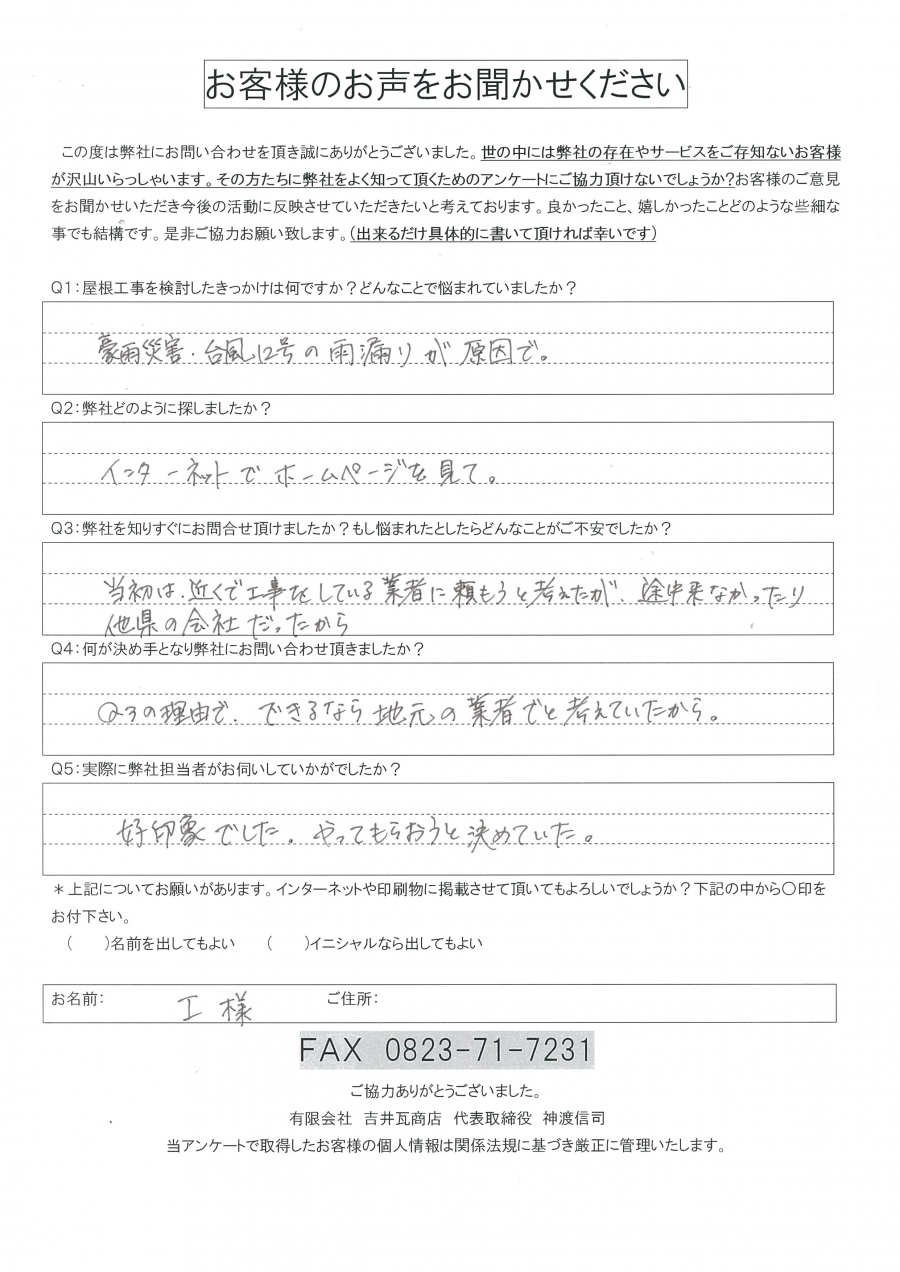 お客様のお声をお聞かせください
この度は弊社にお問い合わせを頂き誠にありがとうございました。世の中には弊社の存在やサービスをご存知ないお客様
が沢山いらっしゃいます。その方たちに弊社をよく知って頂くためのアンケートにご協力頂けないでしょうか?お客様のご意見
をお聞かせいただき今後の活動に反映させていただきたいと考えております。良かったこと、嬉しかったことどのような些細な
事でも結構です。是非ご協力お願い致します。(出来るだけ具体的に書いて頂ければ幸いです)
Q1:屋根工事を検討したきっかけは何ですか?どんなことで悩まれていましたか?
豪雨災害・台風12号の雨漏りが原因で。
Q2:弊社どのように探しましたか?
インターネットでホームページを見て。
Q3:弊社を知りすぐにお問合せ頂けましたか?もし悩まれたとしたらどんなことがご不安でしたか?
当初は、近くで工事をしている業者に頼もうと考えたが、途中来なかったり
他県の会社だったから
Q4:何が決め手となり弊社にお問い合わせ頂きましたか?
Q3の理由で、できるなら地元の業者でと考えていたから。
Q5:実際に弊社担当者がお伺いしていかがでしたか?
好印象でした。やってもらおうと決めていた。
*上記についてお願いがあります。インターネットや印刷物に掲載させて頂いてもよろしいでしょうか?下記の中から○印を
お付下さい。
( )名前を出してもよい ( )イニシャルなら出してもよい
お名前: 工 様 ご住所:
FAX 0823-71-7231
ご協力ありがとうございました。
有限会社 吉井瓦商店 代表取締役 神渡信司
当アンケートで取得したお客様の個人情報は関係法規に基づき厳正に管理いたします。